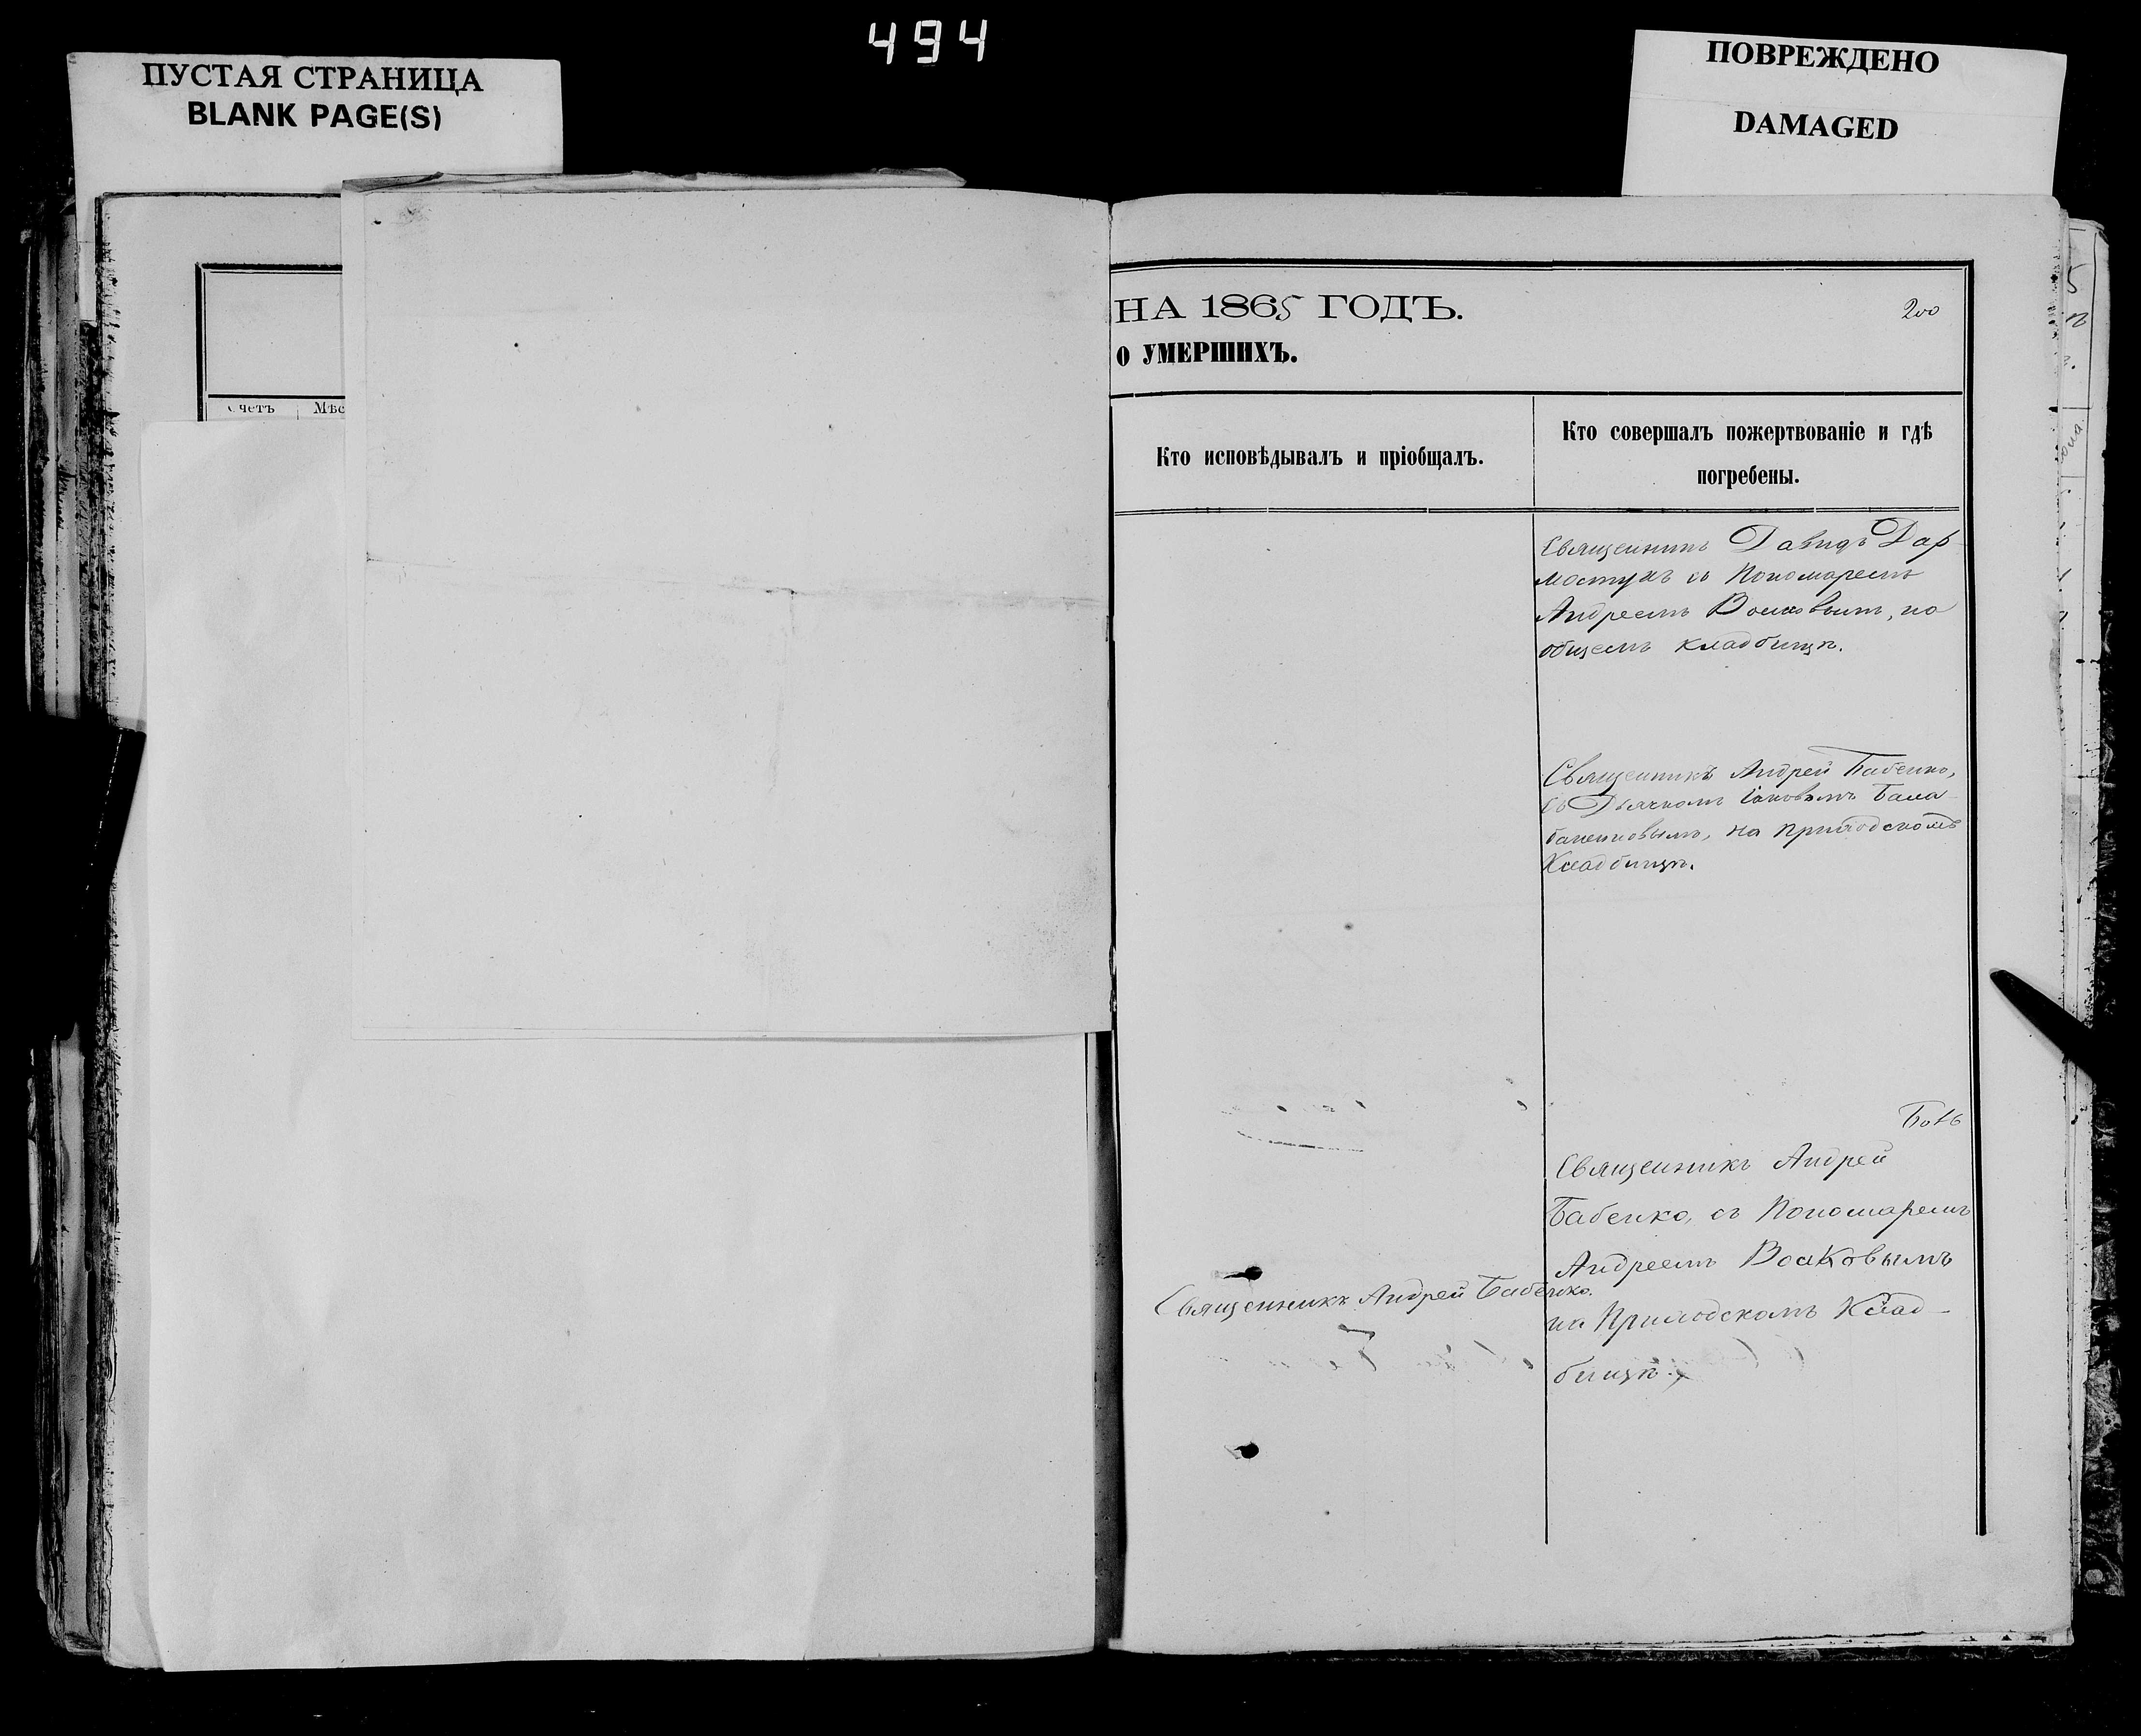 494
ПУСТАЯ СТРАНИЦА
BLANK PAGE(S)
ПОВРЕЖДЕНО
DAMAGED
счетъ Мѣс
НА 1865 ГОДЪ.
200
О УМЕРШИХЪ.
Кто исповѣдывалъ и пріобщалъ.
Кто совершалъ пожертвованіе и гдѣ
погребены.
Священникъ Давидъ Дар-
мостукъ съ Пономаремъ
Андреемъ Волковымъ, на
общемъ кладбищѣ.
Священникъ Андрей Бабенко,
съ Дьячкомъ Іаковомъ Бала-
баненковымъ, на приходскомъ
Кладбищѣ.
Священникъ Андрей
Бабенко, съ Пономаремъ
Андреемъ Волковымъ
на Приходскомъ Клад-
бищѣ.
Священникъ Андрей Бабенко.